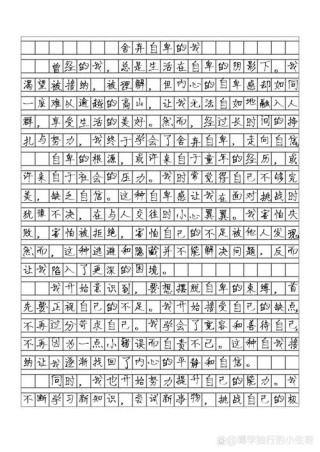 舍弃自卑的我
曾经的我，总是生活在自卑的阴影下。我
渴望被接纳，被理解，但内心的自卑感却如同
一座难以逾越的高山，让我无法自如地融入人
群，享受生活的美好。然而，经过长时间的挣
扎与努力，我终于学会了舍弃自卑，走向自信
自卑的根源，或许来自于童年的经历，或
许来自于社会的压力。我时常觉得自己不够完
美，缺乏自信。这种自卑感让我在面对挑战时
犹豫不决，在与人交往时小心翼翼。我害怕失
败，害怕被拒绝，害怕自己的不足被他人发现
然而，这种逃避和隐藏并不能解决问题，反而
让我陷入了更深的困境。
我开始意识到，要想摆脱自卑的束缚，首
先要正视自己的不足。我开始接受自己的缺点，
不再过分苛求自己。我学会了宽容和善待自己，
不再因为一点小错误而自责不已。这种自我接
纳让我逐渐找回了内心的平静和自信。
同时，我也开始努力提升自己的能力。我
不断学习新知识，尝试新事物，挑战自己的极
@笃学独行的小生呀